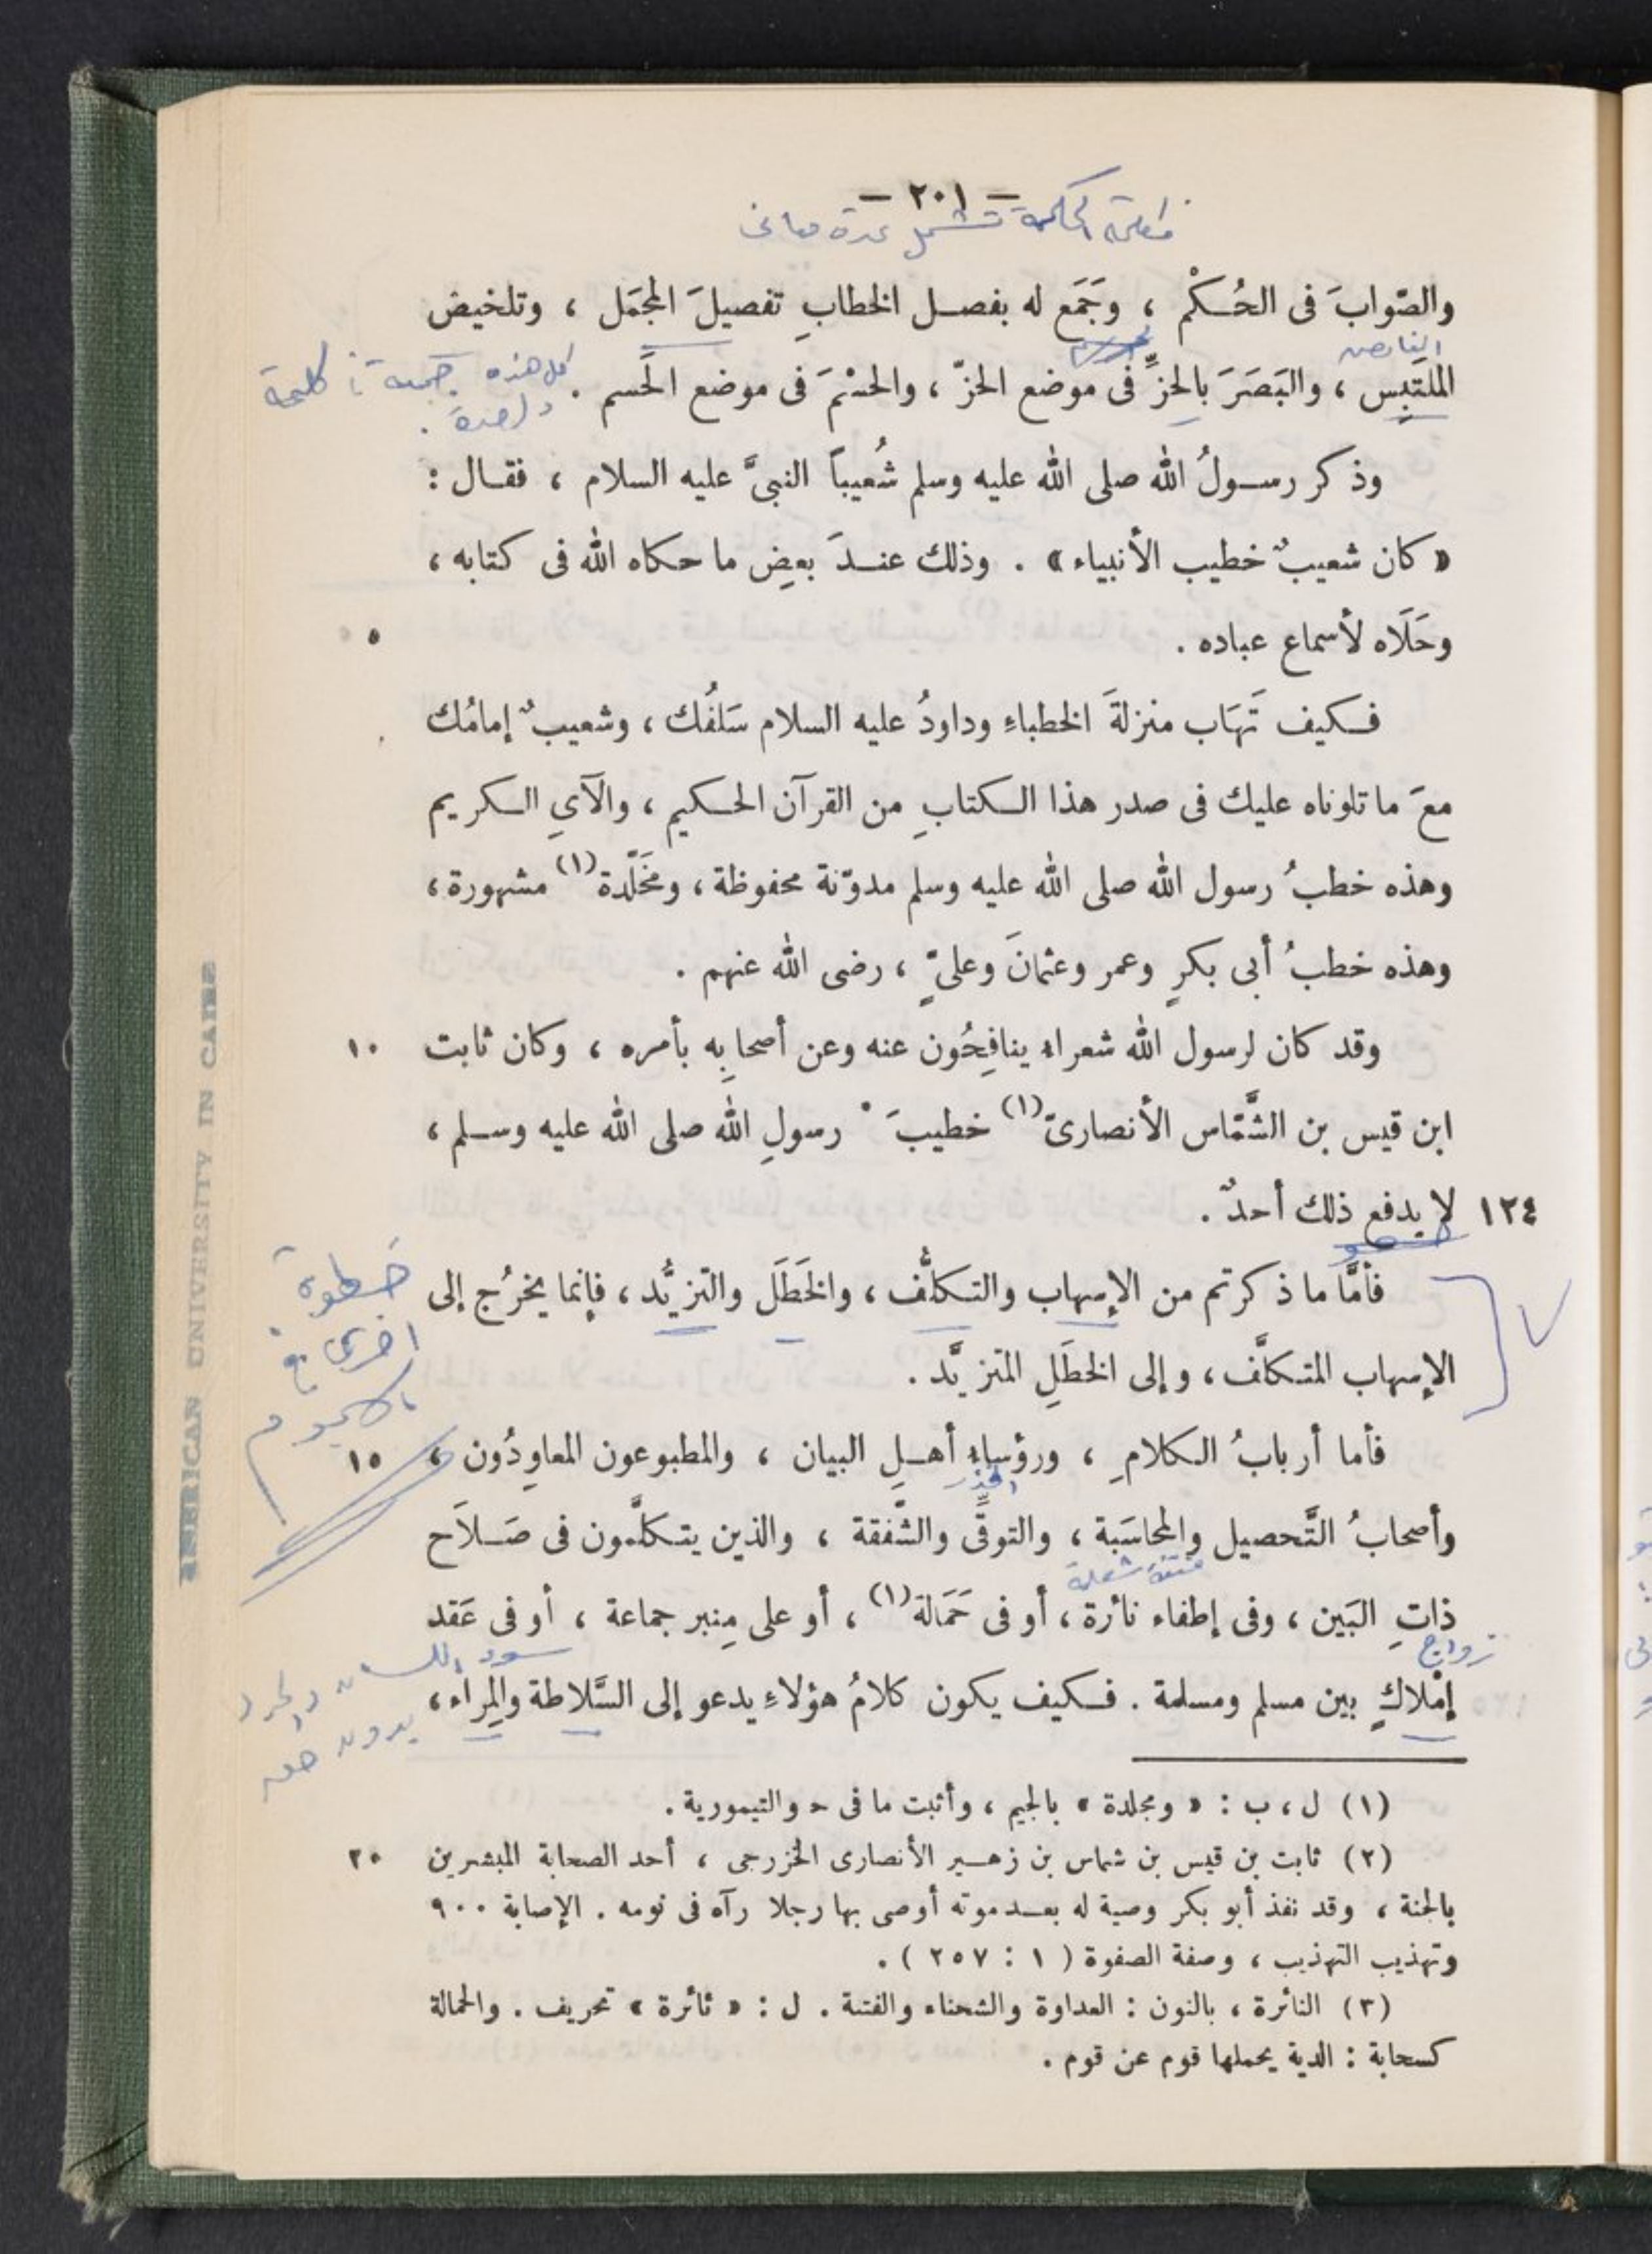 — ٢٠١ —
الحكمة تشمل عدة معانى
والصّوابَ فى الحُكْم ، وجَمَع له بفصل الخطابِ تفصيلَ المجمَل ، وتلخيصَ
الملتَبِس ، والبَصَرَ بالحزِّ فى موضع الحزّ ، والحسْمَ فى موضع الحَسم .
كل هذه كلمة
واحدة .
وذكر رسولُ الله صلى الله عليه وسلم شُعيباً النبىَّ عليه السلام ، فقال :
« كان شعيبٌ خطيب الأنبياء » . وذلك عندَ بعضِ ما حكاه الله فى كتابه ،
وحَلَاه لأسماع عباده . ٥
فكيف تَهَاب منزلةَ الخطباءِ وداودُ عليه السلام سَلَفُك ، وشعيبٌ إمامُك
معَ ما تلوناه عليك فى صدر هذا الكتابِ من القرآن الحكيم ، والآىِ الكريم
وهذه خطبُ رسول الله صلى الله عليه وسلم مدوّنة محفوظة ، ومخَلَّدة(١) مشهورة ،
وهذه خطبُ أبى بكرٍ وعمر وعثمانَ وعلىٍّ ، رضى الله عنهم .
وقد كان لرسول الله شعراء ينافِحُون عنه وعن أصحابِه بأمره ، وكان ثابت ١٠
ابن قيس بن الشَّمّاس الأنصارىّ(١) خطيبَ * رسولِ الله صلى الله عليه وسلم ،
١٢٤ لا يدفع ذلك أحدٌ .
فأمَّا ما ذكرتم من الإسهاب والتكلُّف ، والخَطَل والتزيُّد ، فإنما يخرُج إلى
الإسهاب المتكلَّف ، وإلى الخطَلِ المتزيَّد .
خطوة
اخرى فى
الهجوم
فأما أربابُ الكلامِ ، ورؤساء أهلِ البيان ، والمطبوعون المعاوِدُون ، ١٥
الحذر
وأصحابُ التَّحصيل والمحاسَبة ، والتوقِّى والشَّفقة ، والذين يتكلَّمون فى صَلاَح
فتنة شعلة
ذاتِ البَين ، وفى إطفاء نائرة ، أو فى حَمَالة(١) ، أو على مِنبر جماعة ، أو فى عَقد
زواج
إمْلاكٍ بين مسلم ومسلمة . فكيف يكون كلامُ هؤلاءِ يدعو إلى السَّلاطة والمِراء ،
بدون حق
(١) ل ، ب : « ومجلدة » بالجيم ، وأثبت ما فى ح والتيمورية .
(٢) ثابت بن قيس بن شماس بن زهير الأنصارى الخزرجى ، أحد الصحابة المبشرين ٢٠
بالجنة ، وقد نفذ أبو بكر وصية له بعد موته أوصى بها رجلا رآه فى نومه . الإصابة ٩٠٠
وتهذيب التهذيب ، وصفة الصفوة ( ١ : ٢٥٧ ) .
(٣) النائرة ، بالنون : العداوة والشحناء والفتنة . ل : « ثائرة » تحريف . والحمالة
كسحابة : الدية يحملها قوم عن قوم .
AMERICAN UNIVERSITY IN CAIRO